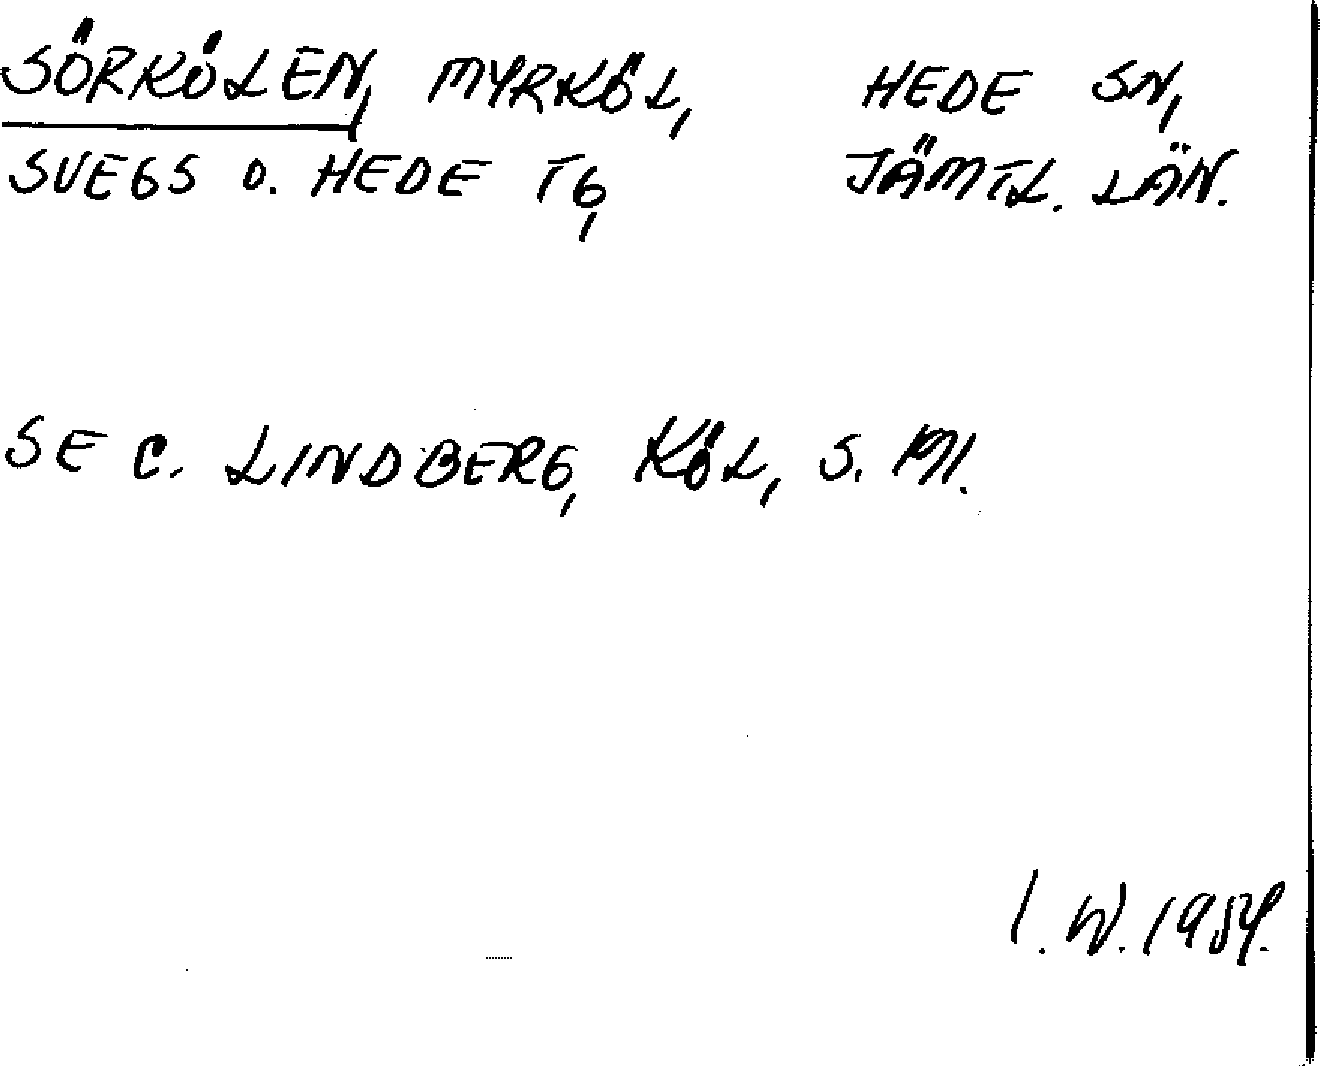 SÖRKÖLEN, MYRKÖL, HEDE SN,
SVEGS O. HEDE TG, JÄMTL. LÄN.
SE C. LINDBERG, KÖL, S. 
I. W. 1984.